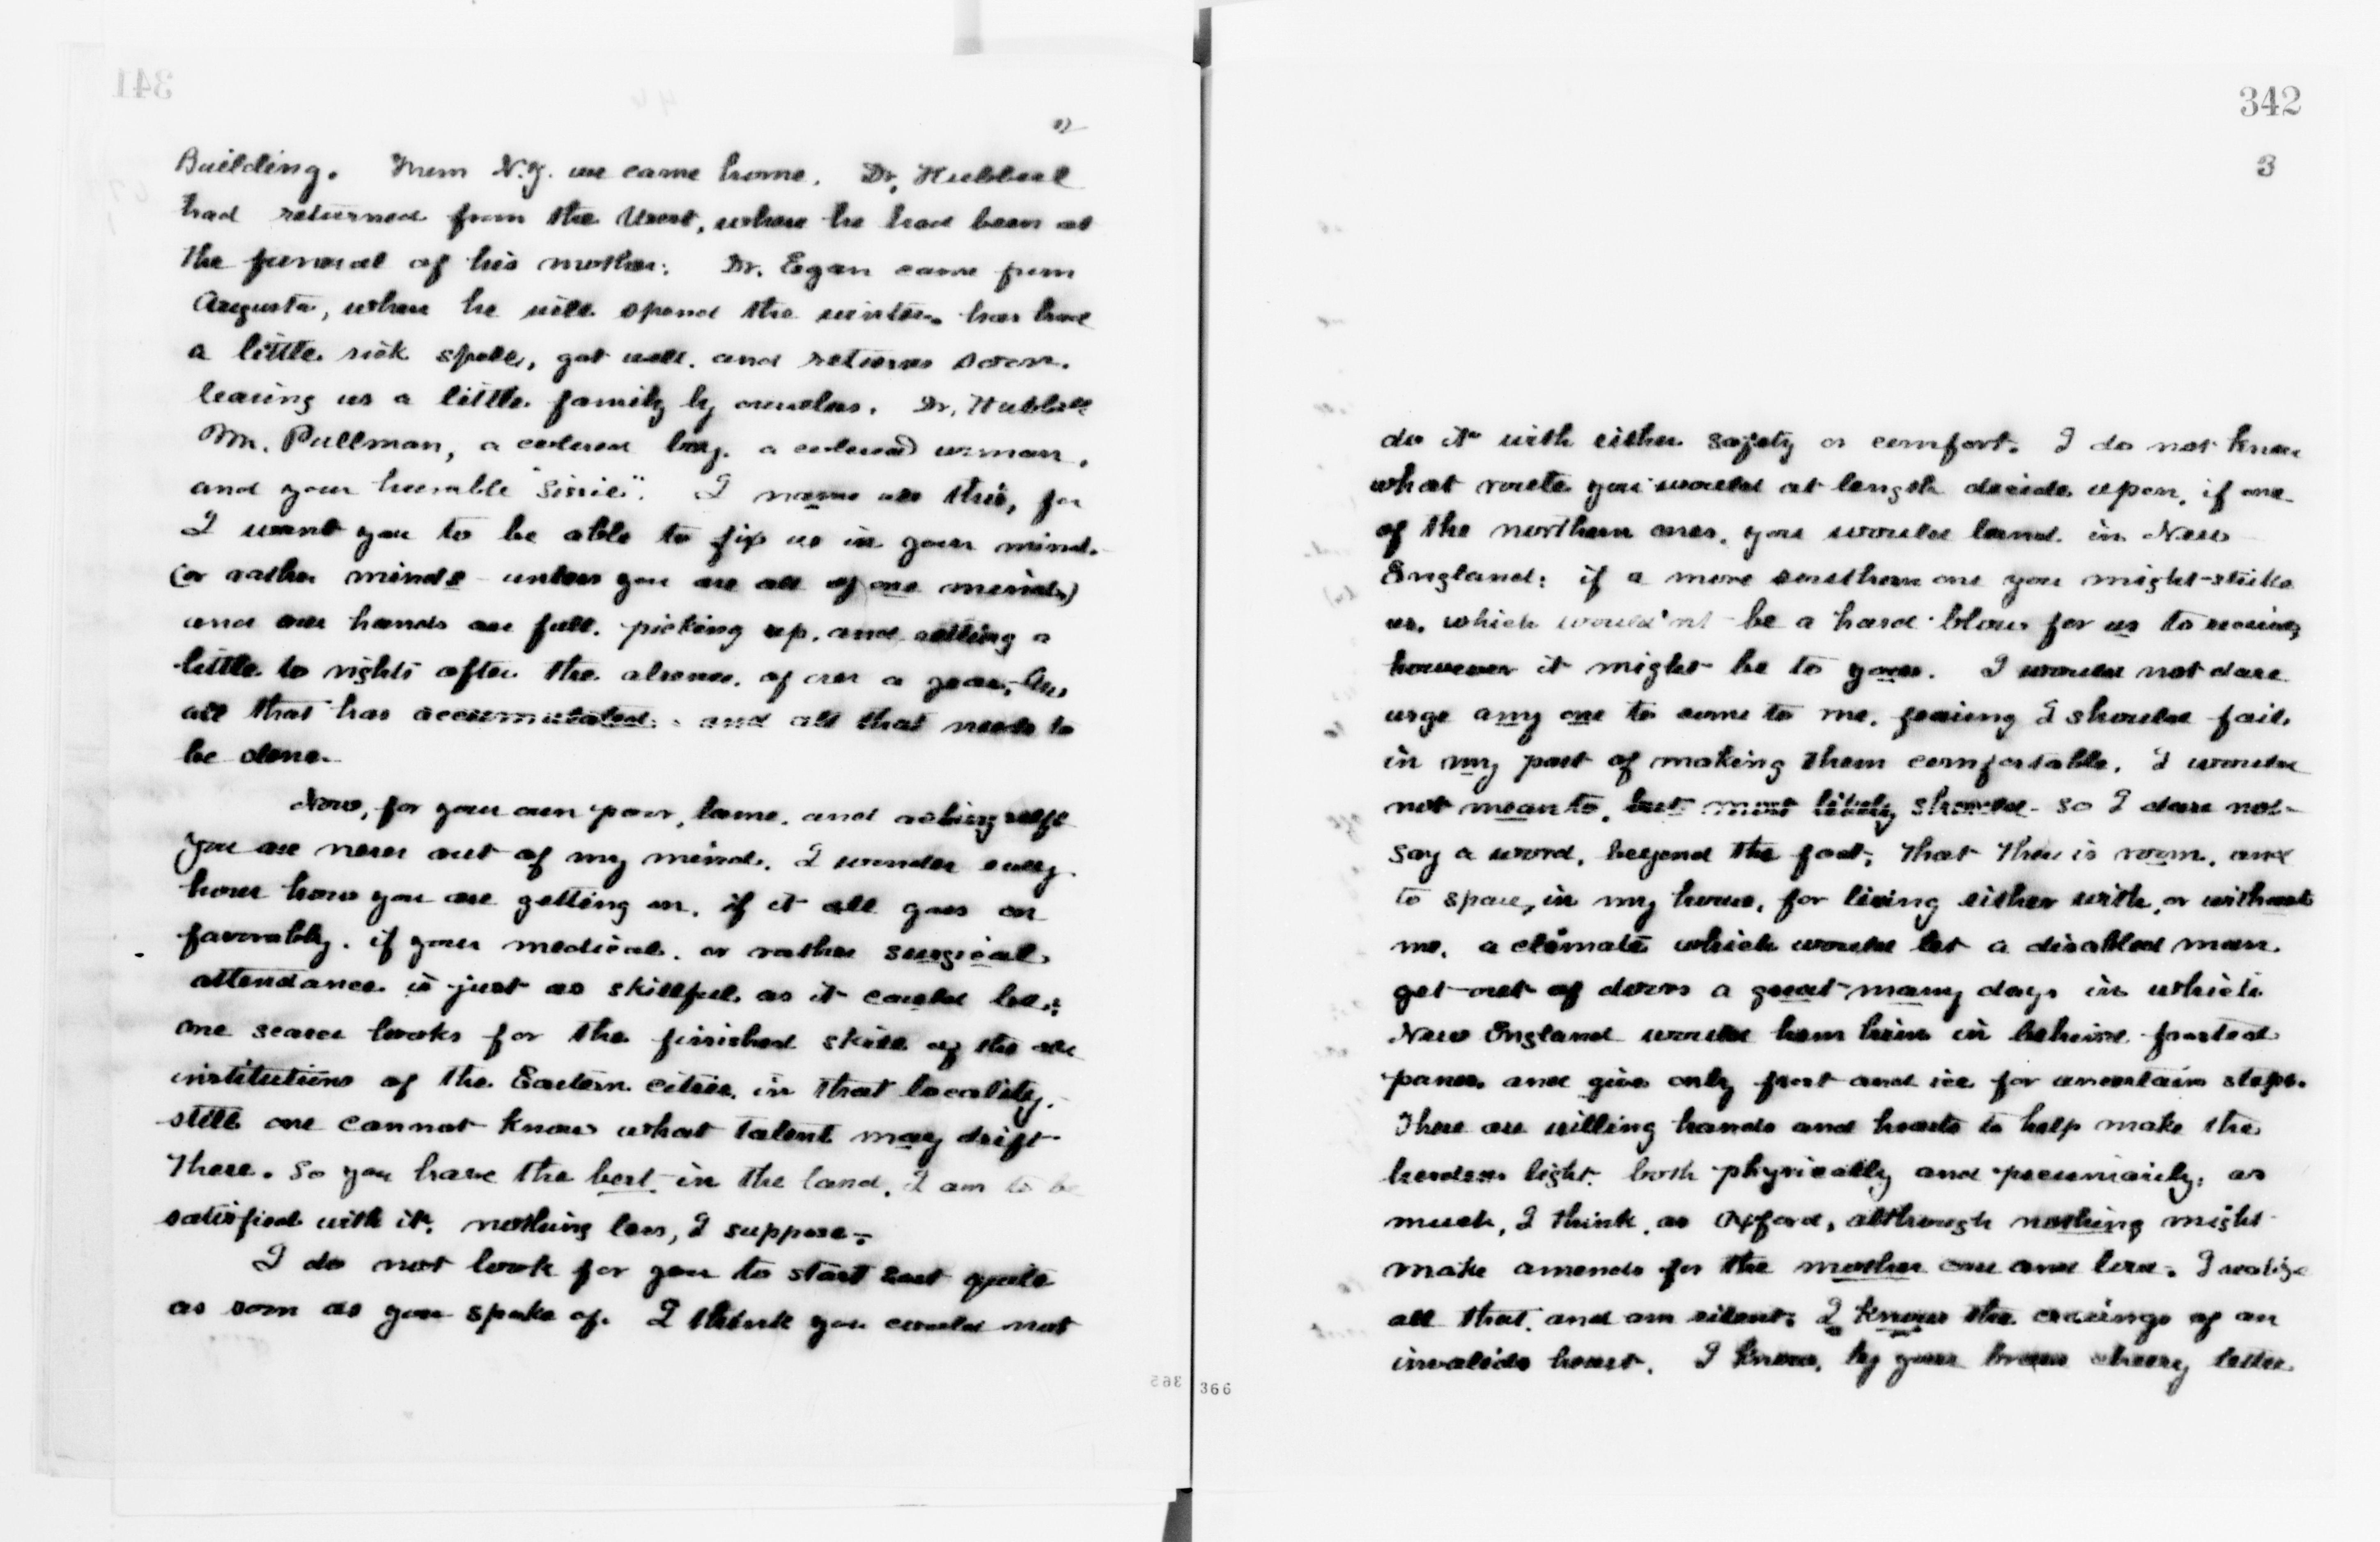 341
2
Building. From N.Y. we came home. Dr. Hubbell
had returned from the West, where he had been at
the funeral of his mother. Dr. Egan came from
Augusta, where he will spend the winter. has had
a little sick spell, got well. and returns soon.
leaving us a little family by ourselves. Dr. Hubbell
Mr. Pullman, a colored boy. a colored woman,
and your humble "Sissie". I name us this, for
I want you to be able to fix us in your mind.
(or rather minds - unless you are all of one mind)
and our hands are full. picking up. and setting a
little to rights after the absence. of over a year,
all that has accumulated. and all that needs to
be done.
Now, for your own poor, lame. and aching self
you are never out of my mind. I wonder every
hour how you are getting on. if it all goes on
favorably. if your medical. or rather surgical
attendance is just as skillful as it could be:
one scarce looks for the finished skill of the old
institutions of the Eastern cities. in that locality.
still one cannot know what talent may drift
there. So you have the best in the land. I am to be
satisfied with it. nothing less, I suppose.
I do not look for you to start East quite
as soon as you spoke of. I think you could not
365
342
3
do it with either safety or comfort. I do not know
what route you would at length decide upon, if one
of the northern ones, you would land in New
England: if a more southern one you might strike
us. which would'nt be a hard blow for us to receive
however it might be to yours. I would not dare
urge any one to come to me. fearing I should fail
in my part of making them comfortable. I would
not mean to, but most likely should - so I dare not
say a word, beyond the fact, that there is room, and
to spare, in my house, for living either with, or without
me. a climate which would let a disabled man
get out of doors a great many days in which
New England would hem him in behind frosted
panes. and give only frost and ice for uncertain steps.
There are willing hands and hearts to help make the
burden light. both physically and pecuniarily, as
much, I think, as Oxford, although nothing might
make amends for the mother care and love. I realize
all that. and am silent; I know the cravings of an
invalids heart. I know, by your brave cheery letter
366